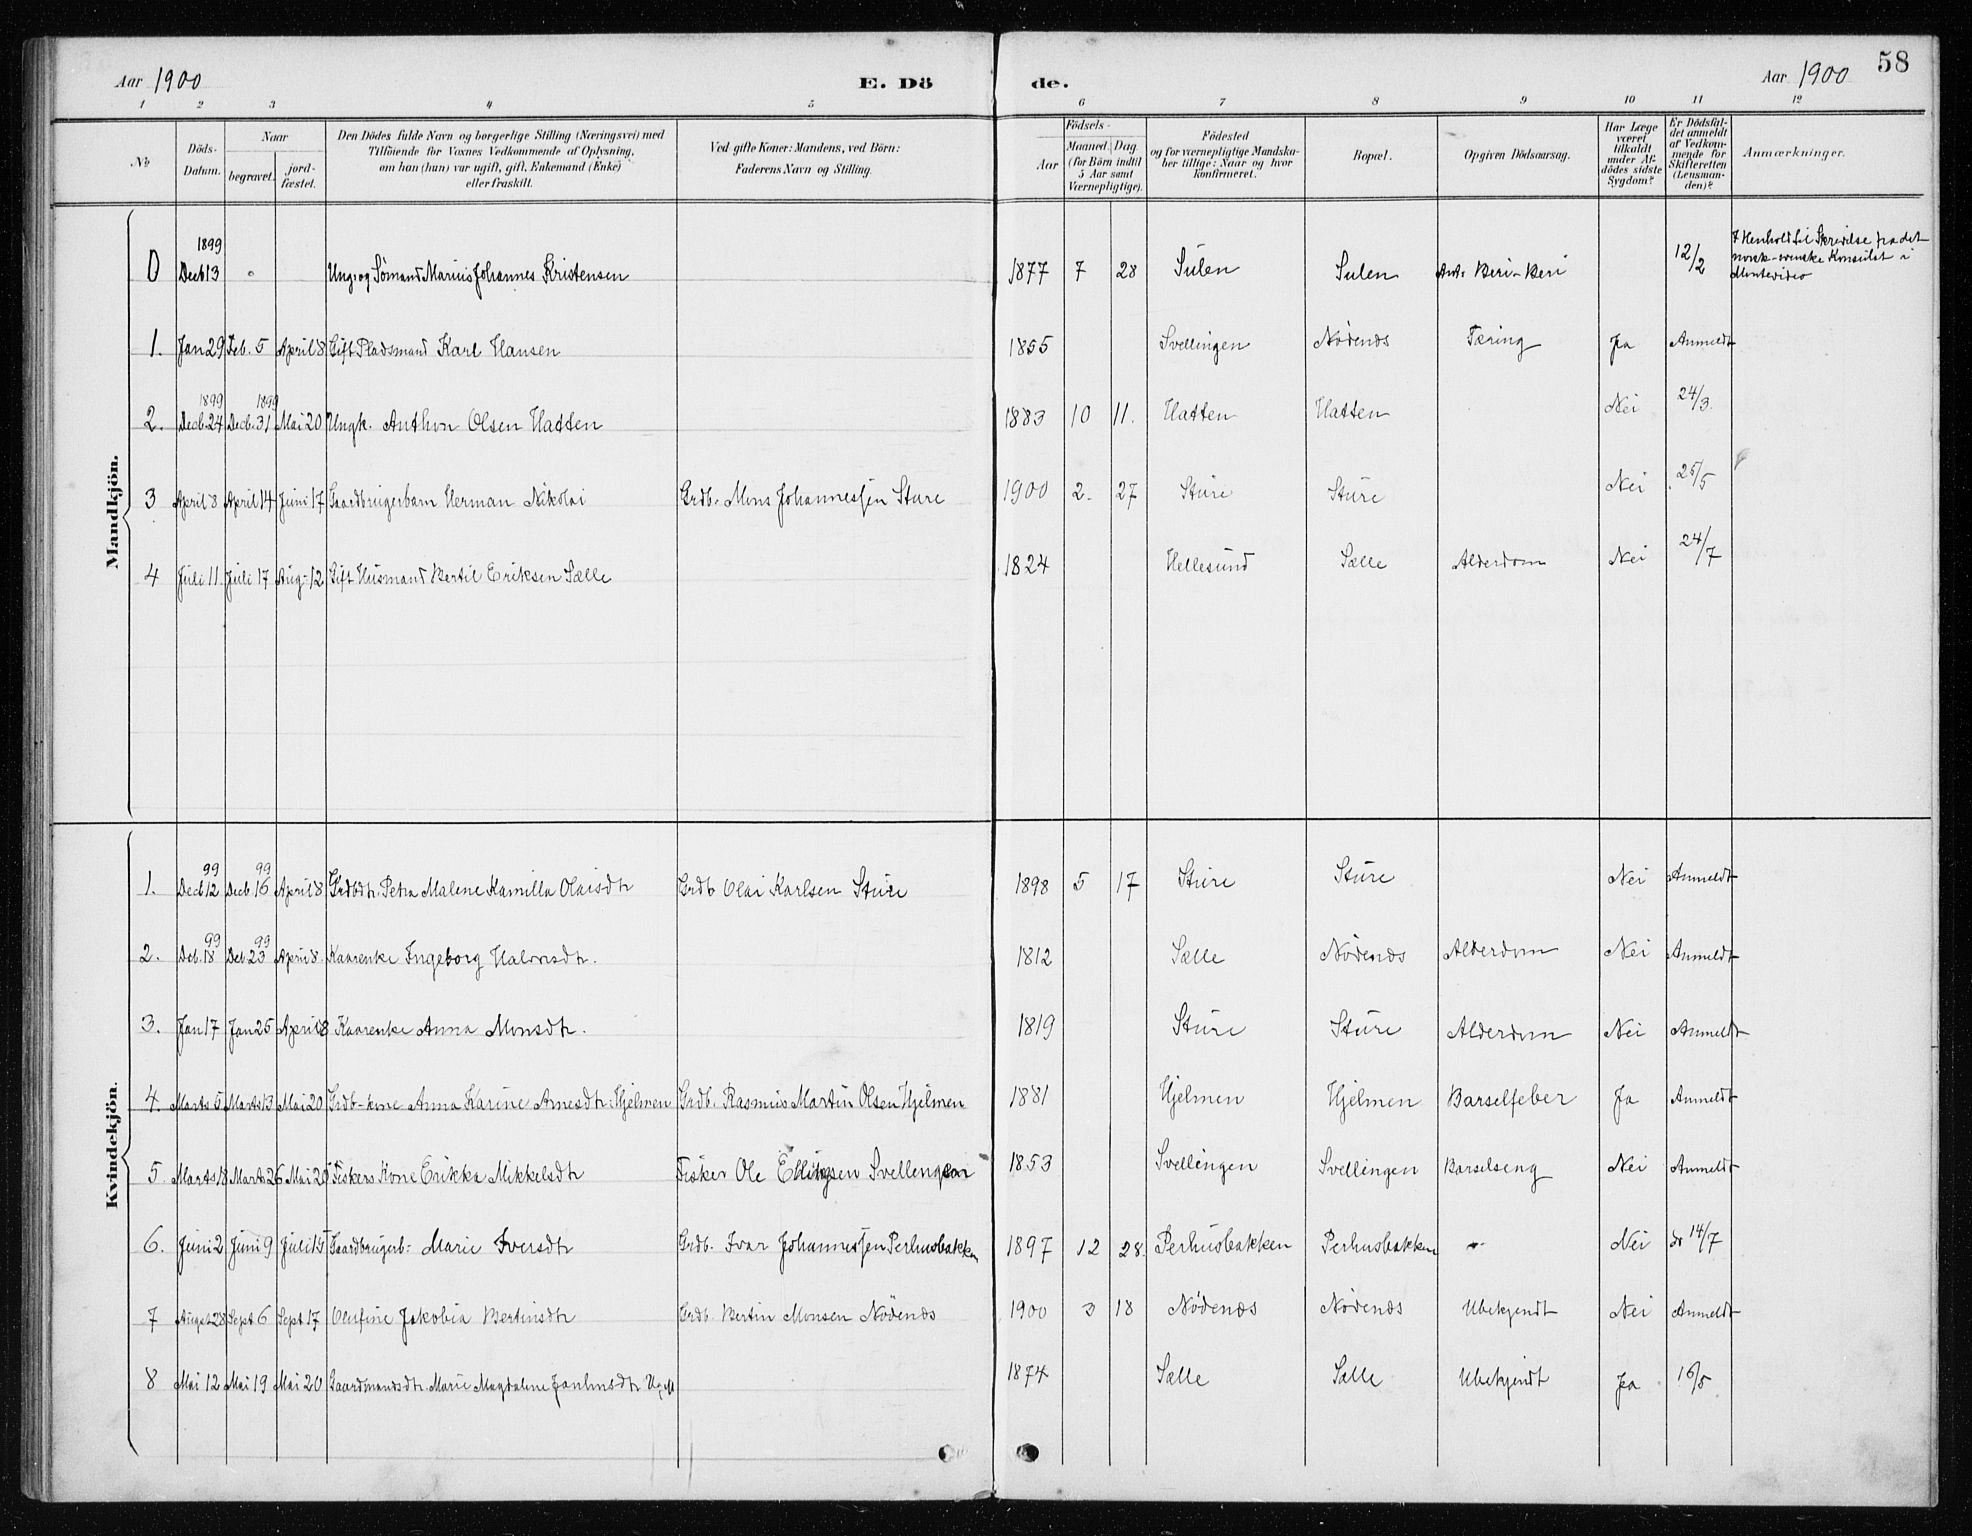 58
Aar 1900 E. Dö de. Aar 1900
1 2 3 4 5 6 7 8 9 10 11 12
No
Döds-Datum.
Naar
begravet.
jord-fæstet.
Den Dödes fulde Navn og borgerlige Stilling (Næringsvei) med
Tilföiende for Voxnes Vedkommende af Oplysning,
om han (hun) var ugift, gift, Enkemand (Enke)
eller fraskilt.
Ved gifte Koner: Mandens, ved Börn:
Faderens Navn og Stilling.
Födsels-
Aar
Maaned. Dag
(for Börn indtil
5 Aar samt
Værnepligtige).
Födested
og for værnepligtige Mandska-
ber tillige: Naar og hvor
konfirmeret.
Bopæl.
Opgiven Dödsaarsag.
Har Læge
været
tilkaldt
under Af-
dödes sidste
Sygdom?
Er Dödsfal-
det anmeldt
af Vedkom-
mende for
Skifteretten
(Lensman-
den)?
Anmærkninger.
Mandkjön.
0 1899 Decb 13 Ung. og Sömand Marius Johannes Kristensen 1877 7 28 Sulen Sulen Ant. Beri-Beri 12/2 I Henhold til Skrivelse fra det
norsk-svenske Konsulat i
Montevideo
1. Jan 29 Feb. 5 April 8 Gift Pladsmand Karl Hansen 1855 Svellingen Nödenes Tæring Ja Anmeldt
2. 1899 Decb. 24 1899 Decb. 31 Mai 20 Ungk. Anthon Olsen Hatten 1883 10 11. Hatten Hatten Nei 24/3.
3 April 8 April 14 Juni 17 Gaardbrugerbarn Herman Nikolai Grdb. Mons Johannessen Sture 1900 2. 27 Sture Sture Nei 25/5
4 Juli 11. Juli 17 Aug. 12 Gift Husmand Bertil Eriksen Sælle 1824 Hellesund Sælle Alderdom Nei 24/7
Kvindekjön.
1. 99 Decb 12 99 Decb 16 April 8 Grdbdtr. Petra Malene Kamilla Olaisdtr Grdb Olai Karlsen Sture 1898 5 17 Sture Sture Nei Anmeldt
2. 99 Deb. 18 99 Deb 23 April 8. Kaarenke Ingeborg Halvorsdtr. 1812 Sælle Nödenes Alderdom Nei Anmeldt
3. Jan 17 Jan 25 April 8 Kaarenke Anna Monsdtr. 1819 Sture Sture Alderdom Nei Anmeldt
4. Marts 5 Marts 13 Mai 20 Grdb-kone Anna Karine Arnesdtr Hjelmen Grdb. Rasmus Martin Olsen Hjelmen 1881 Hjelmen Hjelmen Barselfeber Ja Anmeldt
5. Marts 18 Marts 26 Mai 20 Fiskers Kone Erikka Mikkelsdtr Fisker Ole Ellingsen Svellingen 1853 Svellingen Svellingen Barselseng Nei Anmeldt
6. Juni 2 Juni 9 Juli 15 Gaardbrugerb: Marie Iversdtr Grdb. Ivar Johannessen Perhusbakken 1897 12 28. Perhusbakken Perhusbakken Nei 14/7
7 August 28 Sept 6 Sept. 17 Olufine Jakobia Bertinsdtr Grdb. Bertin Monsen Nödenes 1900 3 18 Nödenes Nödenes Ubekjendt Nei Anmeldt
8 Mai 12 Mai 19 Mai 20 Gaardmandsdtr. Marie Magdalene 1874 Sælle Sælle Ubekjendt Ja 16/5